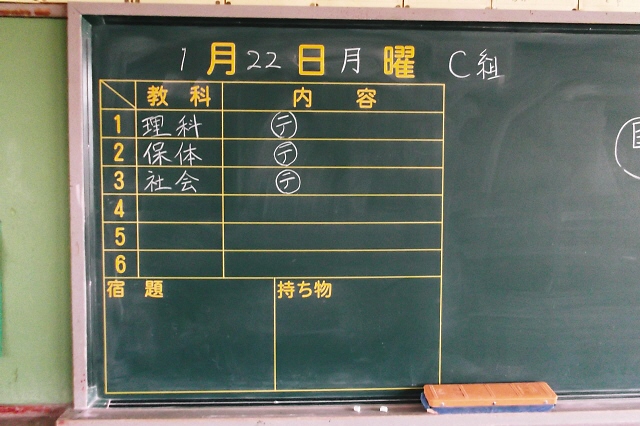 1月22日月曜 C組
教科 内容
1 理科 ㋢
2 保体 ㋢
3 社会 ㋢
4
5
6
宿題 持ち物